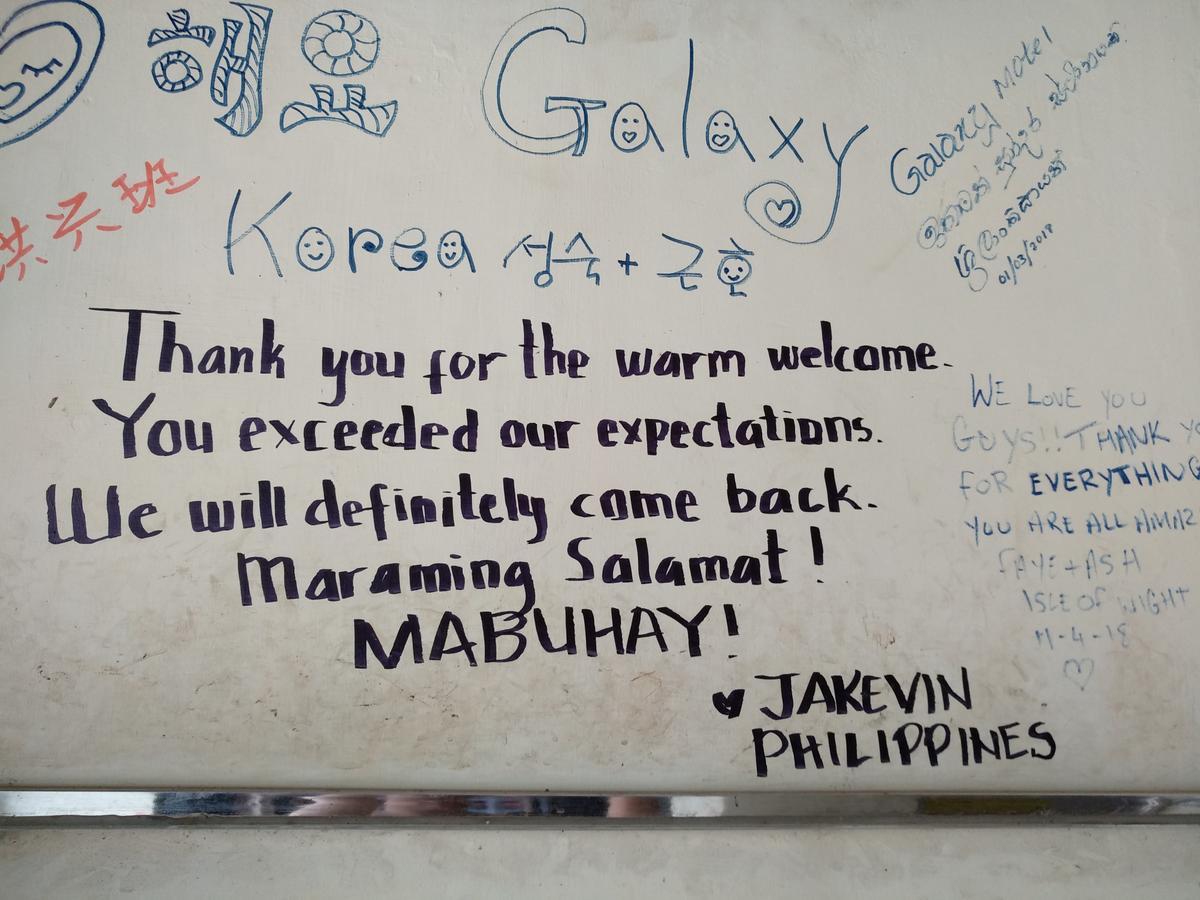 해요 Galaxy
Korea 성숙 + 근환
班
Galaxy Motel
01/03/2018
Thank you for the warm welcome.
You exceeded our expectations.
We will definitely come back.
Maraming Salamat !
MABUHAY!
♥ JAKEVIN
PHILIPPINES
WE LOVE YOU
GUYS!! THANK YO
FOR EVERYTHING
YOU ARE ALL AMAZ
FAYE + ASH
ISLE OF WIGHT
11-4-18
♡